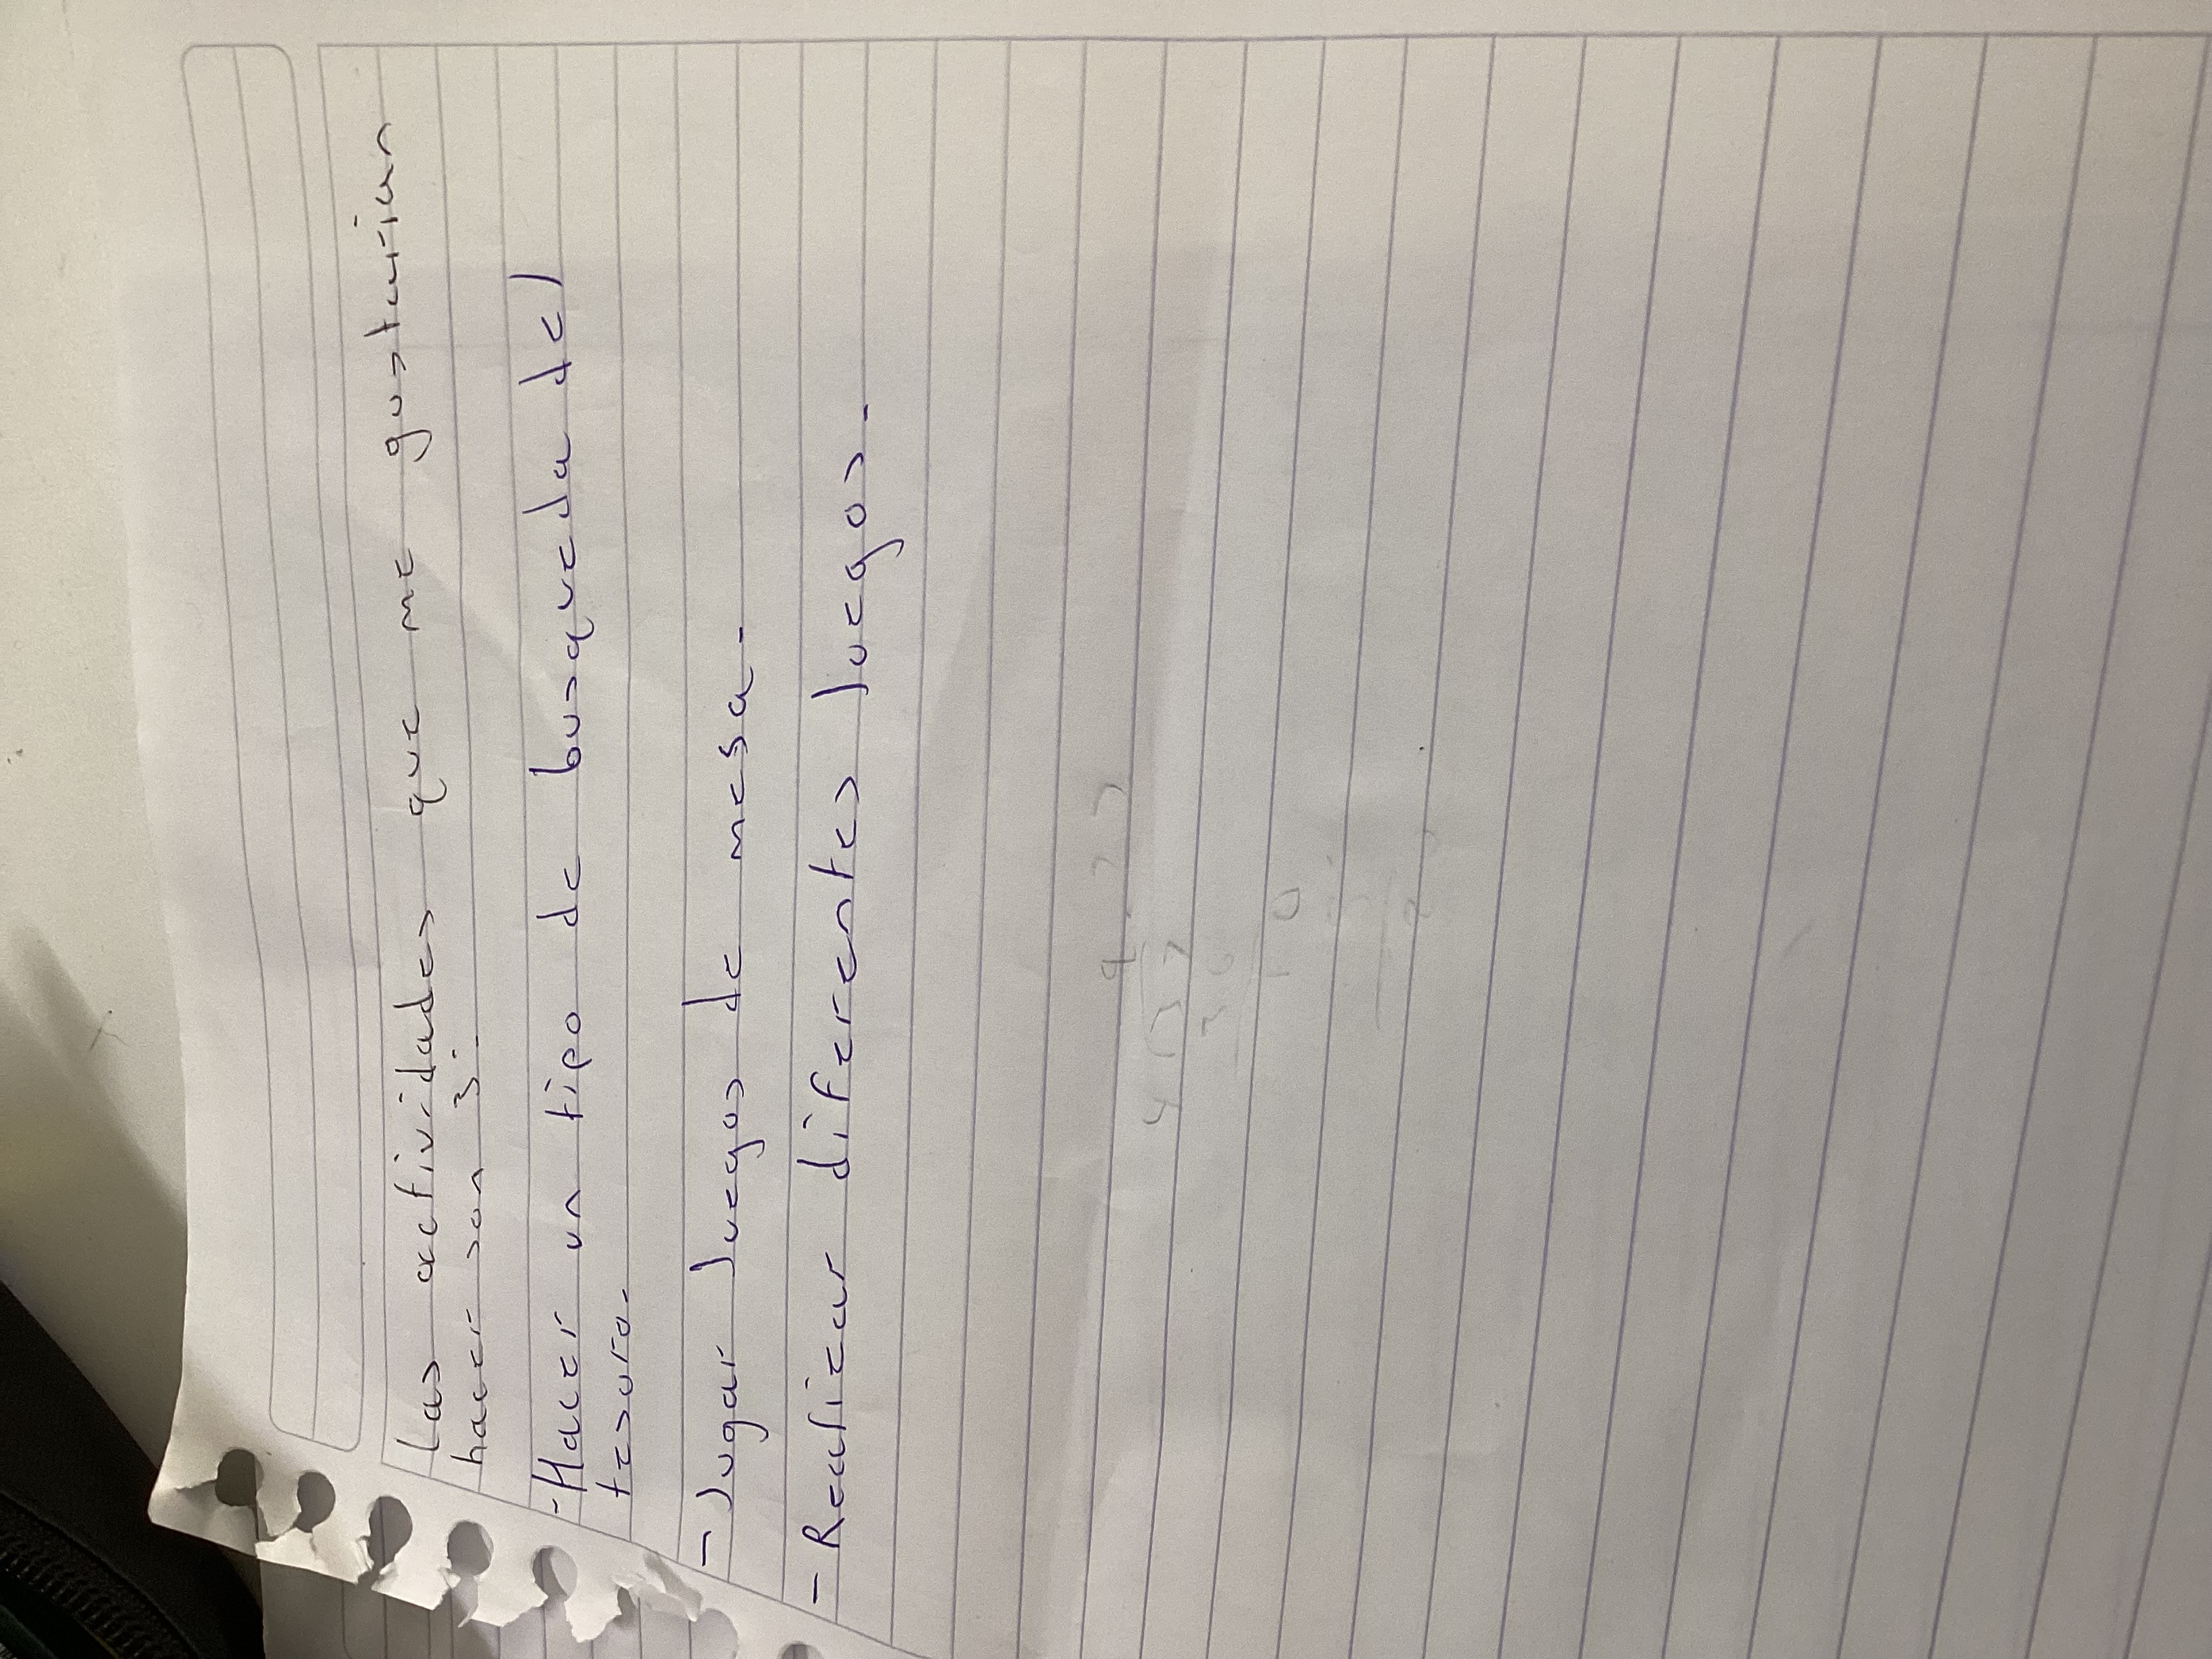 Las actividades que me gustarian
hacer son 3:
-Hacer un tipo de busqueda del
tesoro.
- Jugar Juegos de mesa.
- Realizar diferentes Juegos.